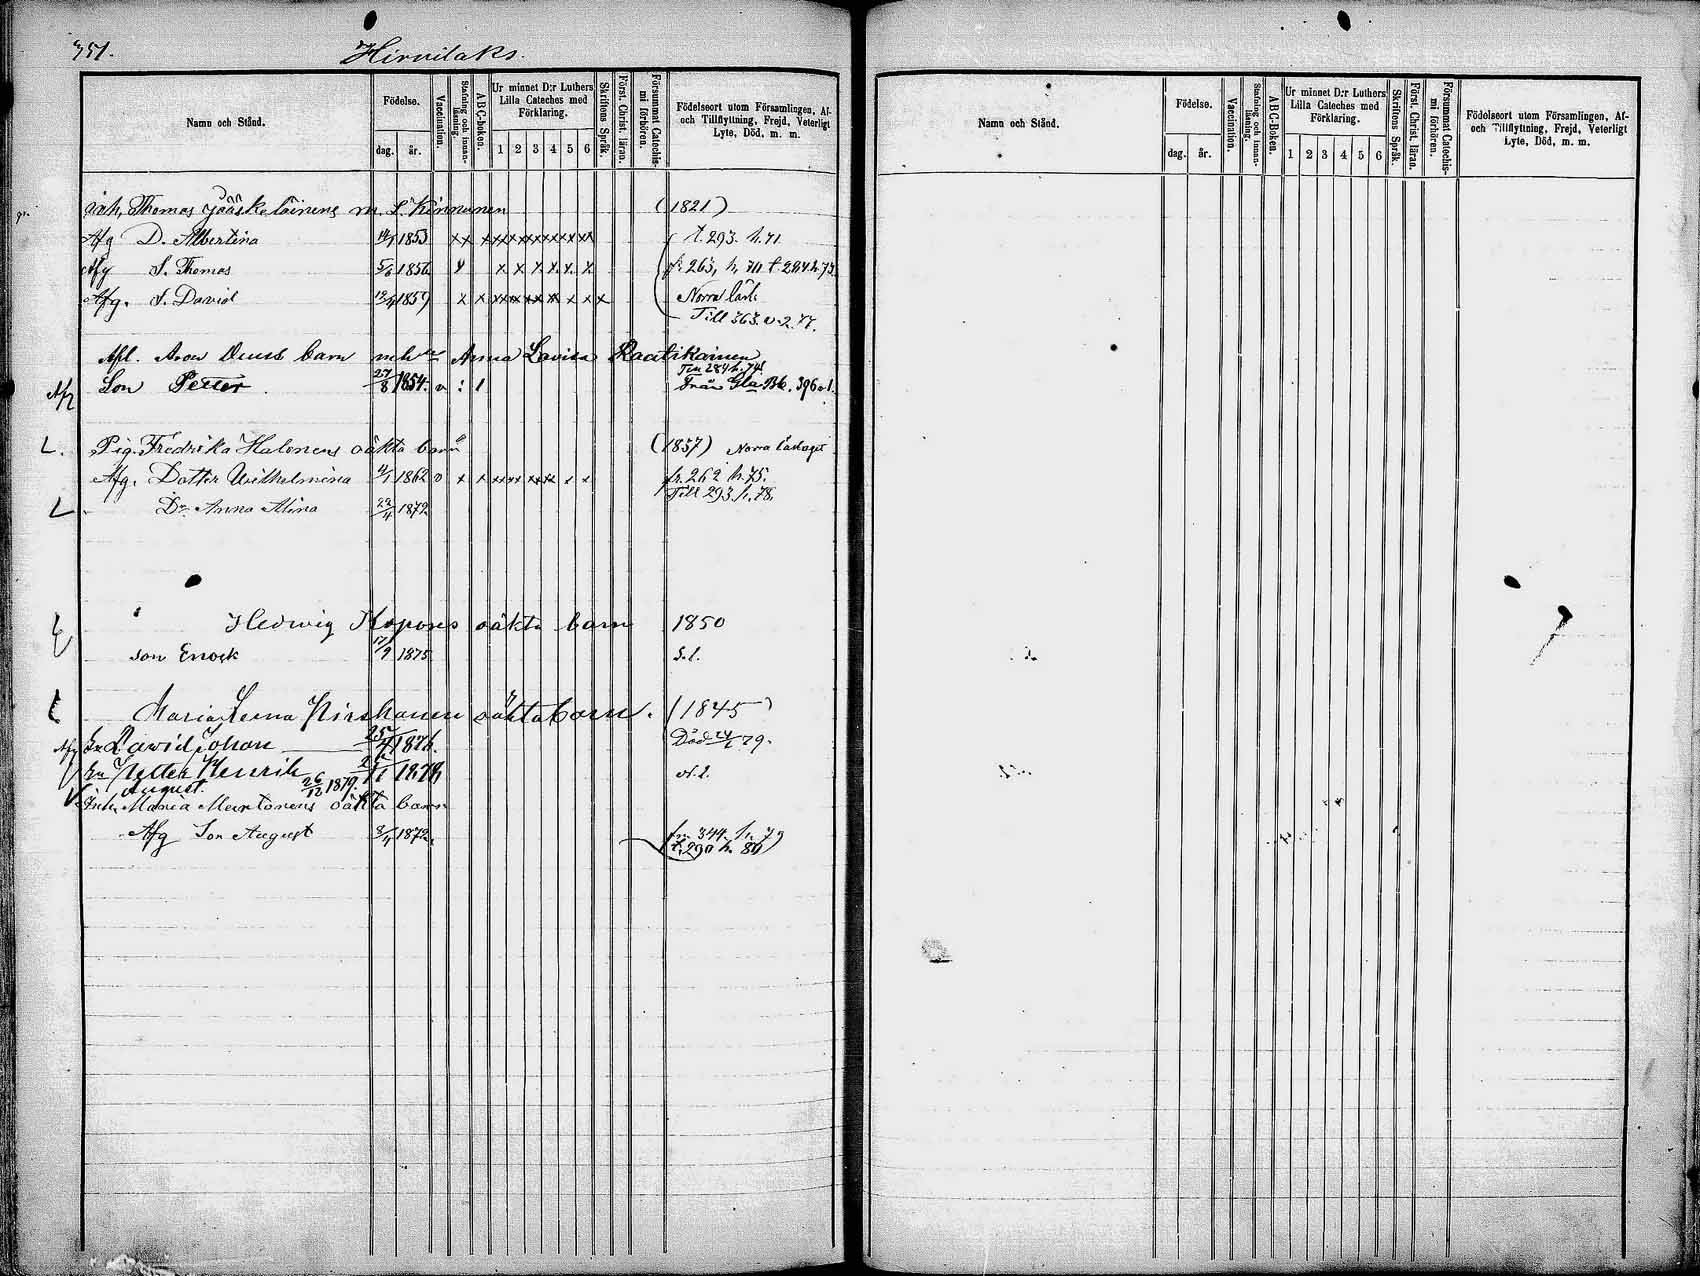 351.
Hirvilaks.
Namn och Stånd.
Födelse.
dag. år.
Vaccination.
Stafning och innanläsning.
ABC-boken.
Ur minnet D:r Luthers Lilla Cateches med Förklaring.
1 2 3 4 5 6
Skriftens Språk.
Först. Christ. läran.
Försummat Catechismi förhören.
Födelseort utom Församlingen, Af- och Tillflyttning, Frejd, Veterligt Lyte, Död, m. m.
inh, Thomas Jääskeläinens m. S. Kinnunen (1821)
Afg D. Albertina 1853 t. 293. h. 71
Afg S. Thomas 1856 fr 263, h. 70 t. 294 h. 73
Afg. S. David 1859 Norra
Till 363. v. 2. 77.
Afl. barn Anna Lovisa Raatikainen
Till 284 h. 74
Afg Son Petter 27/8 1854. v Från Gla Bk. 396
Pig. Fredrika Halonens oäkta barn (1837) Norra
Afg. Dotter Wilhelmina 1862 v fr. 262 h. 75.
Till 293 h. 78.
Dr. Anna Alina 22/4 1872
Hedwig Kopones oäkta barn 1850
son Enock 17/9 1875 s. l.
Maria Leena Hirskanen oäkta barn. (1845)
Afg Sn David Johan 25/4 1876. Död 79.
Sn Petter Henrik 1878
August. 26/12 1879.
Inh. Maria Martonens oäkta barn
Afg Son August 8/4 1872. fr. 344. h. 79
t. 290 h. 80
Namn och Stånd.
Födelse.
dag. år.
Vaccination.
Stafning och innanläsning.
ABC-Boken.
Ur minnet D:r Luthers Lilla Cateches med Förklaring.
1 2 3 4 5 6
Skriftens Språk.
Först. Christ. läran.
Försummat Catechismi förhören.
Födelseort utom Församlingen, Af- och Tillflyttning, Frejd, Veterligt Lyte, Död, m. m.